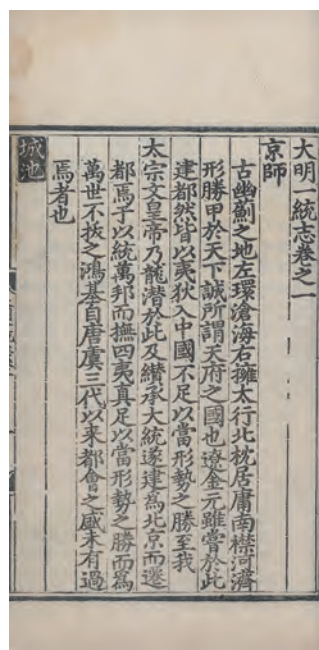 大明一統志卷之一
京師
古幽薊之地左環滄海右擁太行北枕居庸南襟河濟
形勝甲於天下誠所謂天府之國也遼金元雖嘗於此
建都然皆以夷狄入中國不足以當形勢之勝至我
太宗文皇帝乃龍潛於此及纘承大統遂建為北京而遷
都焉于以統萬邦而撫四夷真足以當形勢之勝而為
萬世不拔之鴻基自唐虞三代以來都會之盛未有過
焉者也
城池